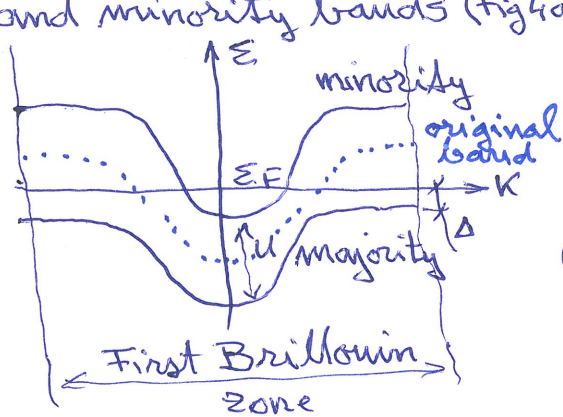 and minority bands (Fig 4a
ε
minority
original
band
εF
K
Δ
U
majority
First Brillouin
zone